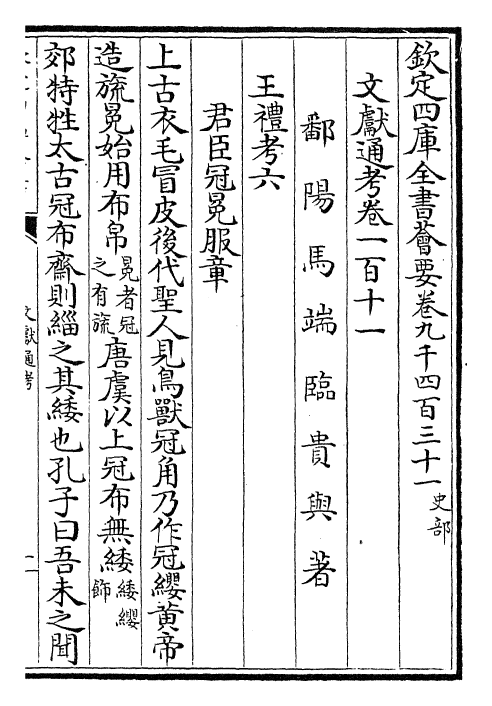 欽定四庫全書薈要卷九千四百三十一史部
文獻通考卷一百十一
鄱陽馬端臨貴與著
王禮考六
君臣冠冕服章
上古衣毛冒皮後代聖人見鳥獸冠角乃作冠纓黄帝
造旒冕始用布帛冕者冠之有旒唐虞以上冠布無緌緌纓飾
郊特牲太古冠布齋則緇之其緌也孔子曰吾未之聞
文獻通考